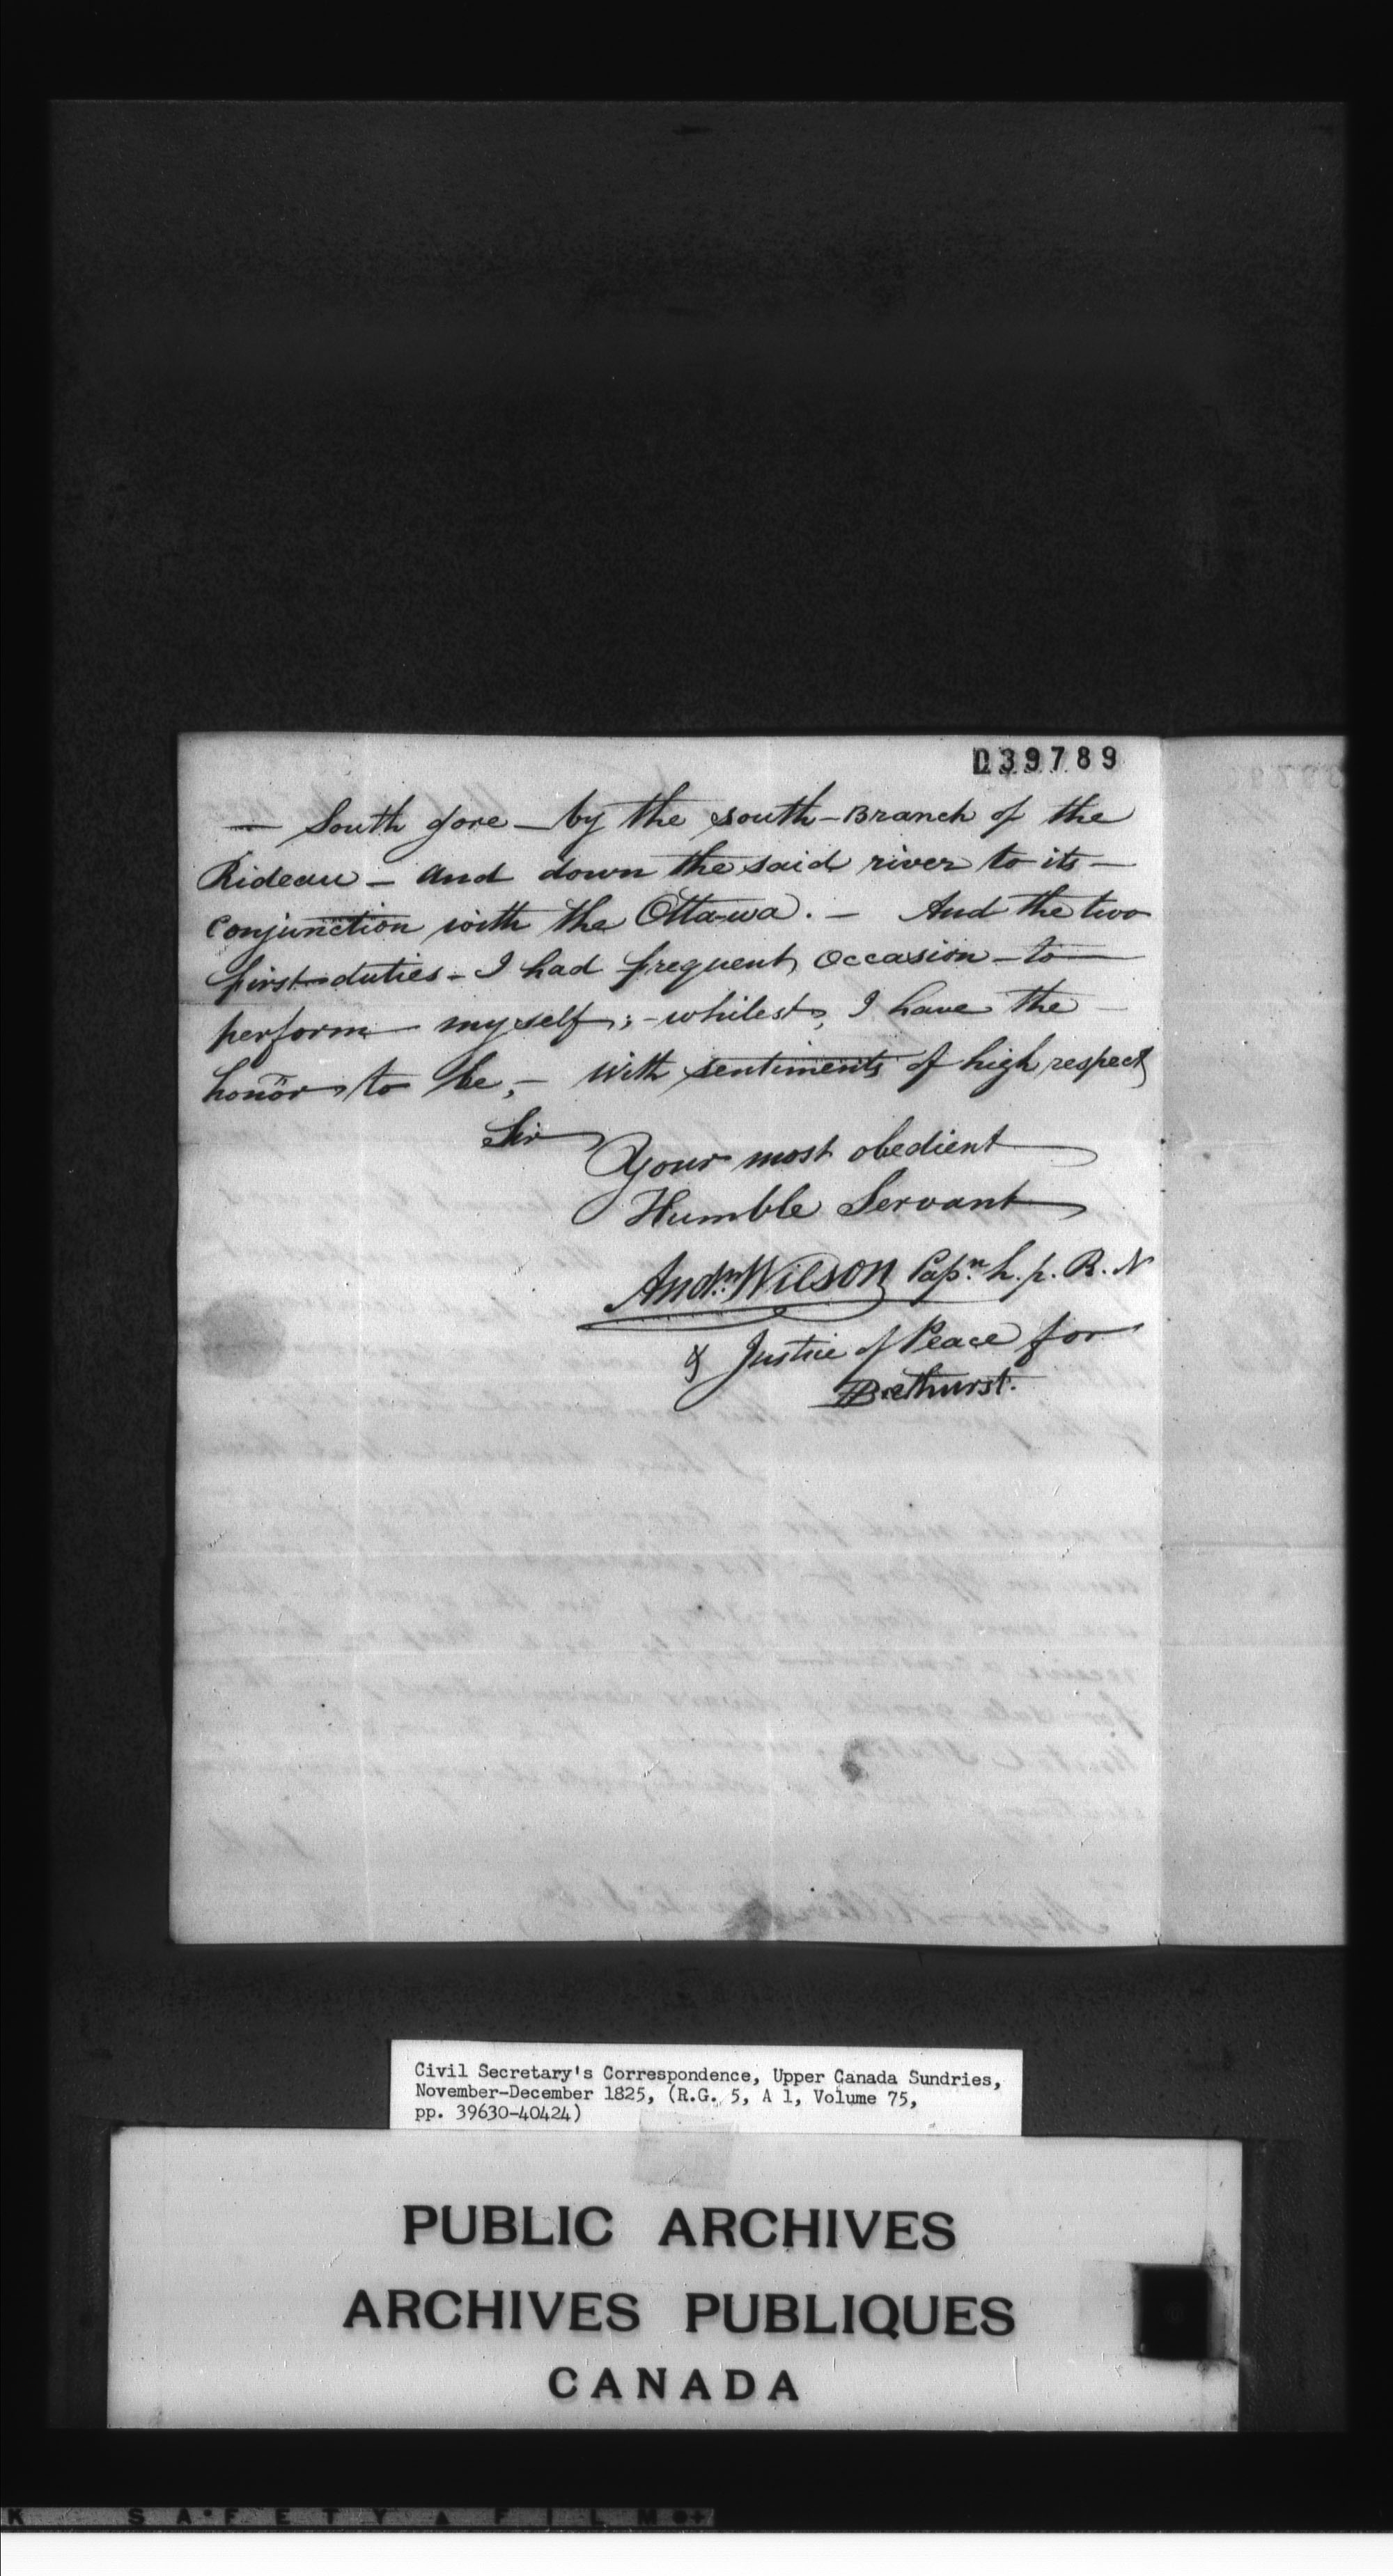 039789
— South gore — by the south-Branch of the
Rideau — and down the said river to its —
Conjunction with the Ottawa. — And the two
first duties - I had frequent occasion — to —
perform myself; - whilest, I have the —
honor to be, — with sentiments of high respect
Sir
Your most obedient
Humble Servant
Andw. Wilson Capn. h. p. R. N
& Justice of Peace for
Bathurst.
Civil Secretary's Correspondence, Upper Canada Sundries,
November-December 1825, (R.G. 5, A 1, Volume 75,
pp. 39630-40424)
PUBLIC ARCHIVES
ARCHIVES PUBLIQUES
CANADA
K SAFETY ▲ FILM